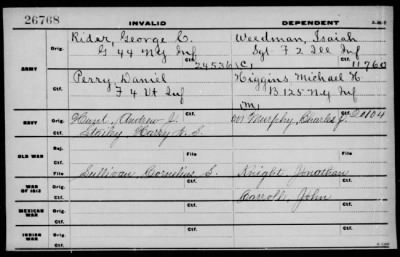 26768
INVALID DEPENDENT
ARMY
Orig. Rider, George E. Weedman, Isaiah
G 44 N.Y. Inf Sgt F 2 Ill Inf
Ctf. 245361 Ctf. 11760
Orig. Perry, Daniel Higgins Michael H
F 4 Vt Inf B 125 N.Y. Inf
Ctf. Ctf.
NAVY
Orig. Hunt, Andrew J. Murphy, Charles J.
Harry
OLD WAR
File File
WAR OF 1812
Orig. Sullivan, Cornelius S. Knight, Jonathan
Ctf. Ctf.
MEXICAN WAR
Orig. Carroll, John
Ctf. Ctf.
INDIAN WAR
Orig.
Ctf. Ctf.